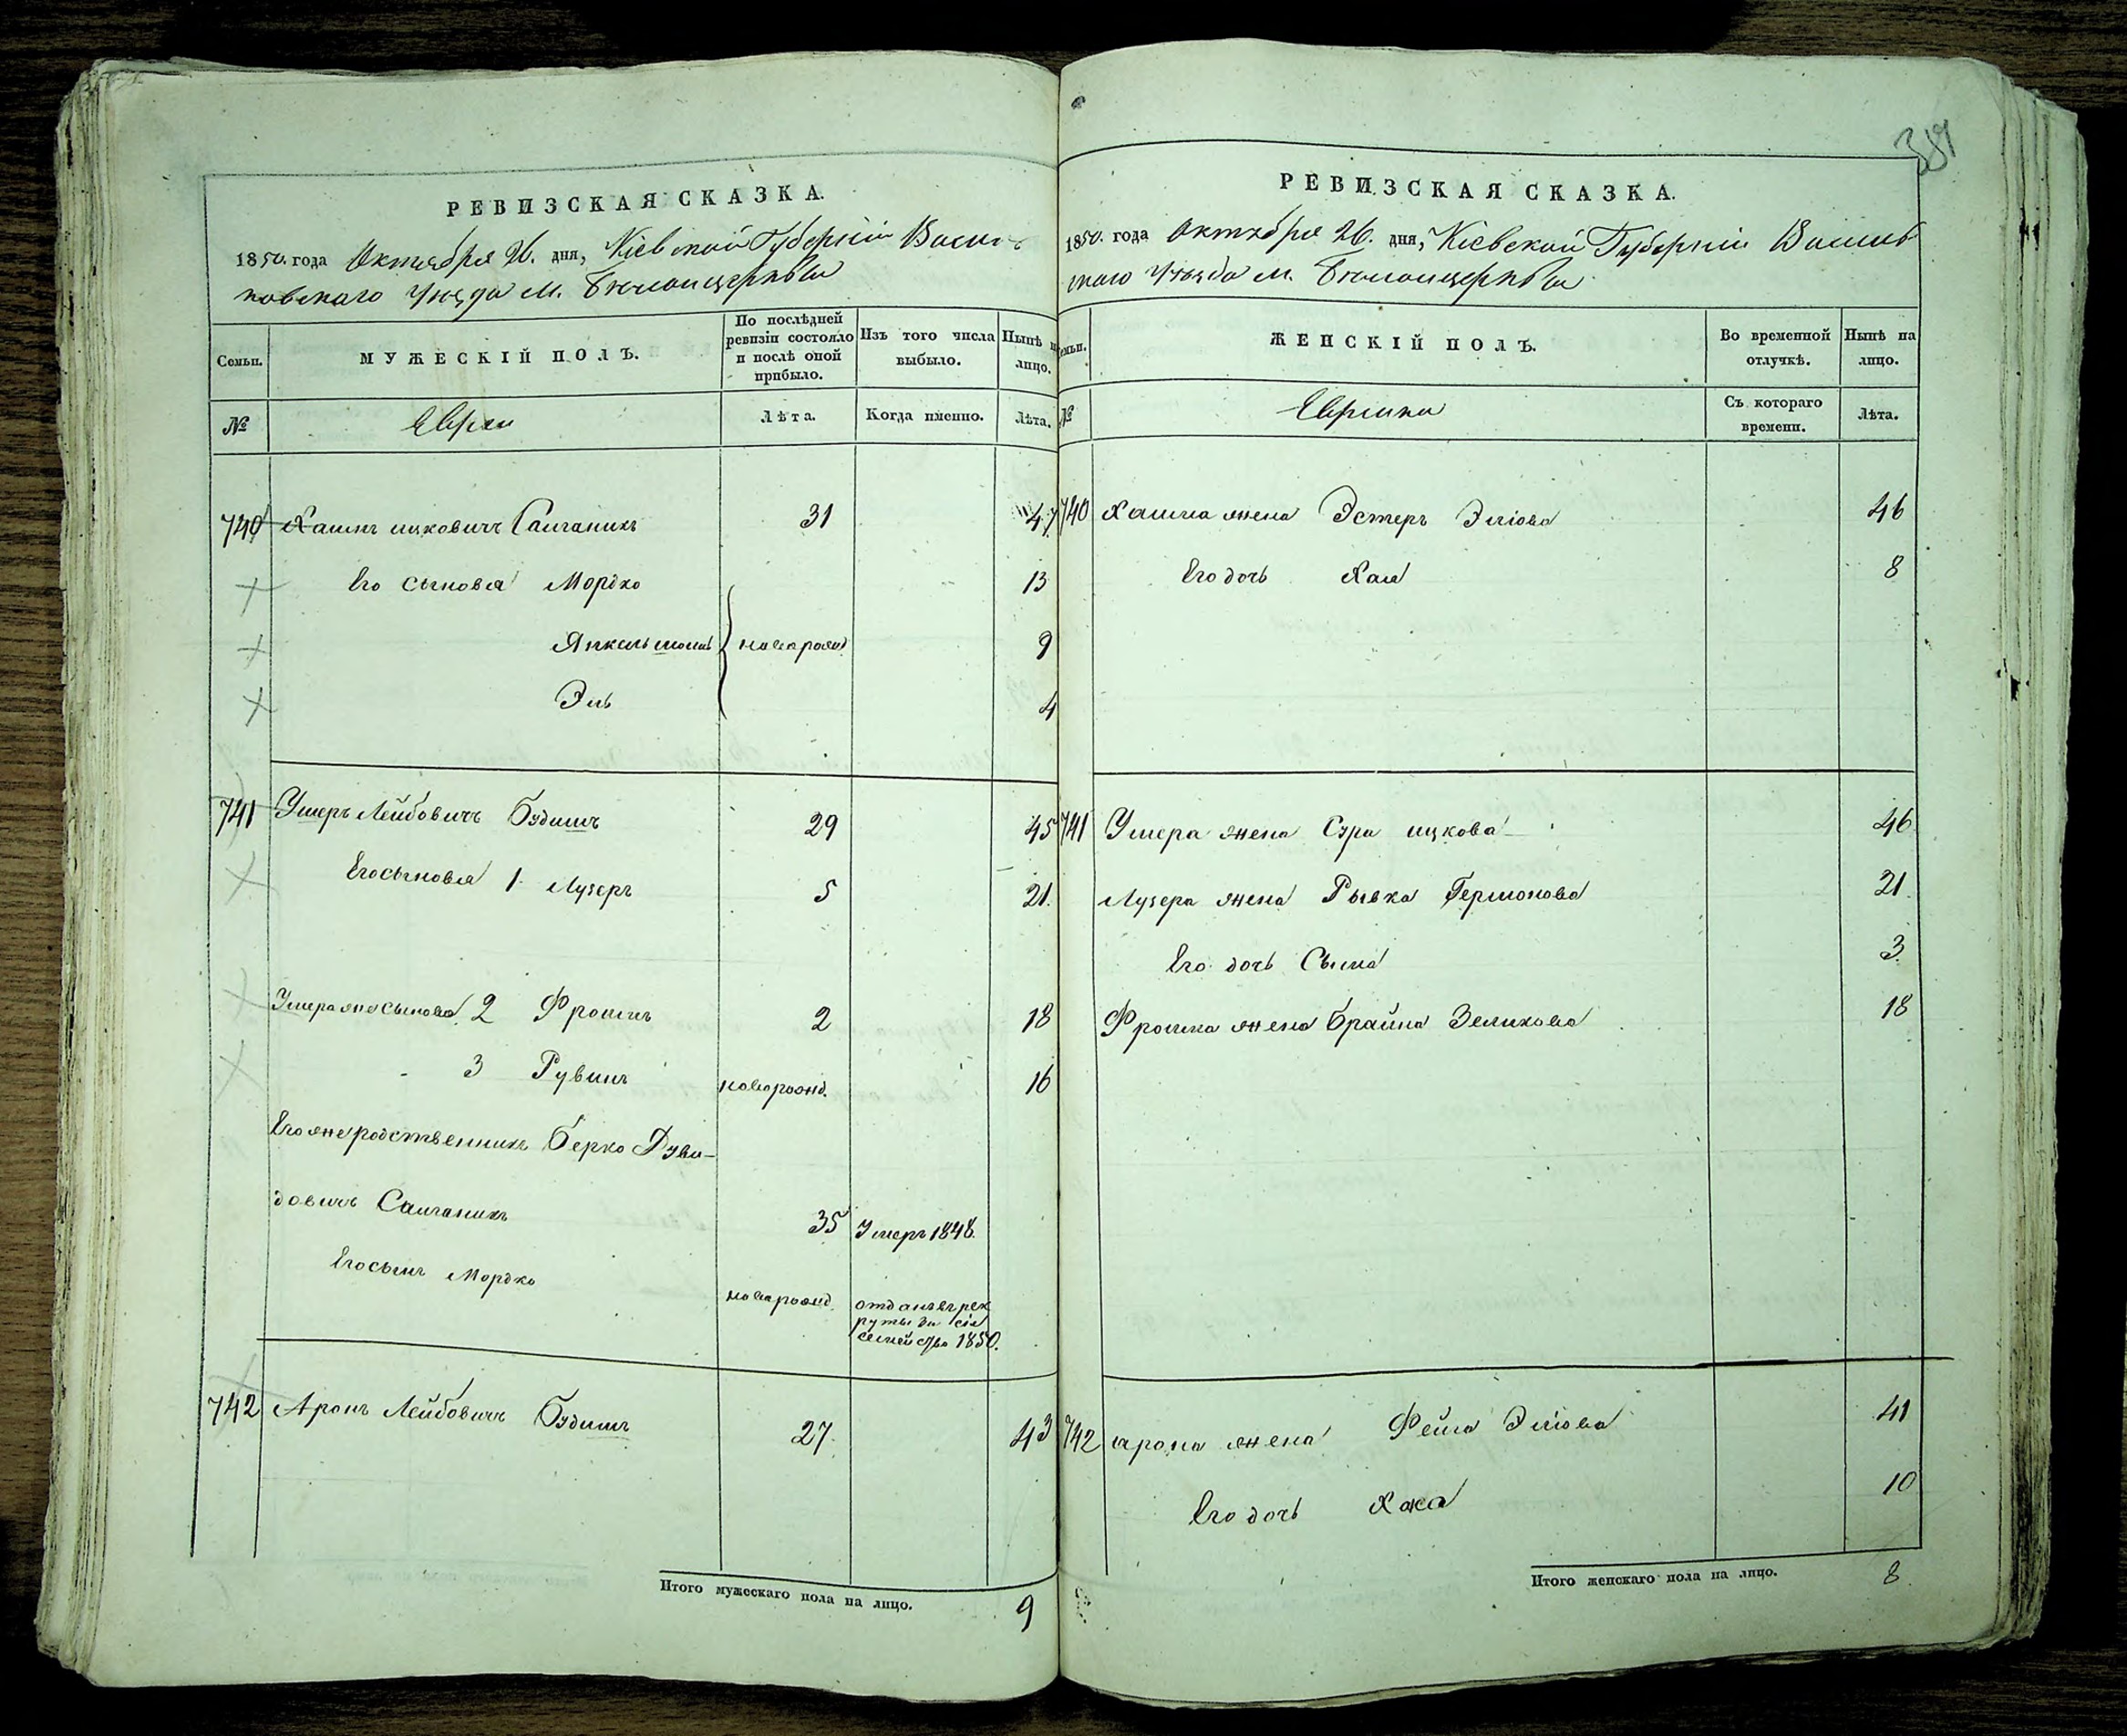 РЕВИЗСКАЯ СКАЗКА.
1850. года Октября 26. дня, Кіевской Губерніи Василь-
ковскаго Уѣзда м. Бѣлоицеркви
Семьи.
МУЖЕСКІЙ ПОЛЪ.
По послѣдней ревизіи состояло и послѣ оной прибыло.
Изъ того числа выбыло.
Нынѣ на лицо.
№
Евреи
Лѣта.
Когда именно.
Лѣта.
740 Хаимъ ицковичъ Салганикъ 31 47
Его сыновья Мордко 13
Янкель новорожд. 9
Эль 4
741 Ушеръ Лейбовичъ Будишъ 29 45
Его сыновья 1. Лузеръ 5 21.
Ушера же сыновья 2 Фроимъ 2 18
3 Рувинъ новорожд. 16
Его же родственникъ Берко Дуви-
довичъ Салганикъ 35 Умеръ 1848.
Его сынъ Мордко новорожд. отданъ въ рек
руты за сіе
семейство 1850.
742 Аронъ Лейбовичъ Будишъ 27. 43
Итого мужескаго пола на лицо. 9
РЕВИЗСКАЯ СКАЗКА.
1850. года Октября 26. дня, Кіевской Губерніи Василь
скаго Уѣзда м. Бѣлоицеркви
Семьи.
ЖЕНСКІЙ ПОЛЪ.
Во временной отлучкѣ.
Нынѣ на лицо.
№
Еврейки
Съ котораго времени.
Лѣта.
740 Хаима жена Эстеръ Эліова 46
Его дочь Хая 8
741 Ушера жена Сура ицкова 46
Лузера жена Рывка Гершонова 21.
Его дочь Сыма 3.
Фроима жена Брайна Зеликова 18
742 арона жена Фейга Эліова 41
Его дочь Хана 10
Итого женскаго пола на лицо. 8.